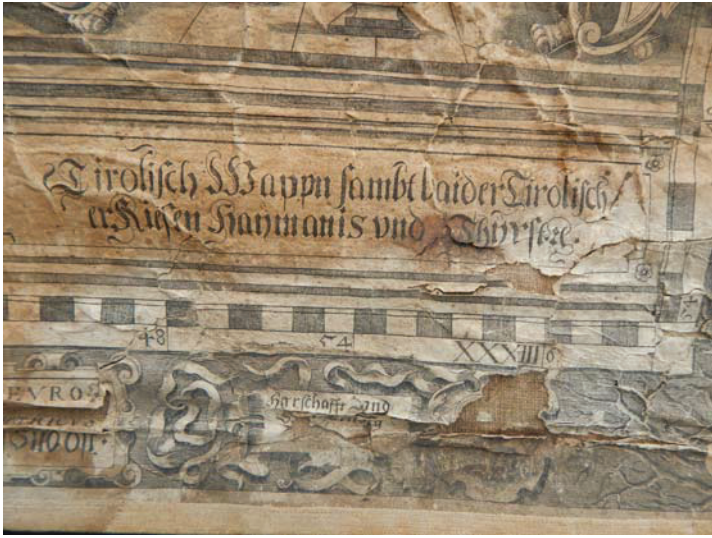 Tirolisch Wappn sambt baider Tirolisch/
er Riesen Haymanis vnd Thyrsen.
48
54
XXXIII
6
54
EVRO
Herschafft Vnd